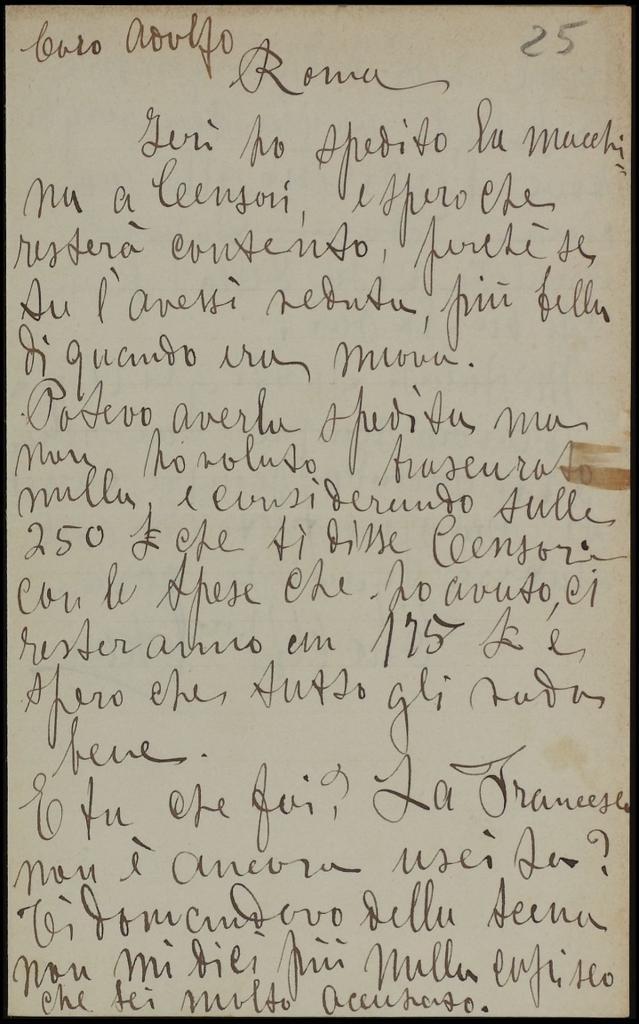 Caro Adolfo
25
Roma
Ieri ho spedito la macchi=
na a Censori, e spero che
resterà contento, perchè se
tu l'avessi veduta, più bella
di quando era nuova.
Potevo averla spedita ma
non ho voluto trascurato
nulla, e considerando sulle
250 £ che ti disse Censori
con le spese che ho avuto, ci
resteranno un 175 £ e
spero che tutto gli vada
bene.
E tu che fai? La Francesca
non è ancora uscita?
Ti domandavo della scena
non mi dici più nulla capisco
che sei molto